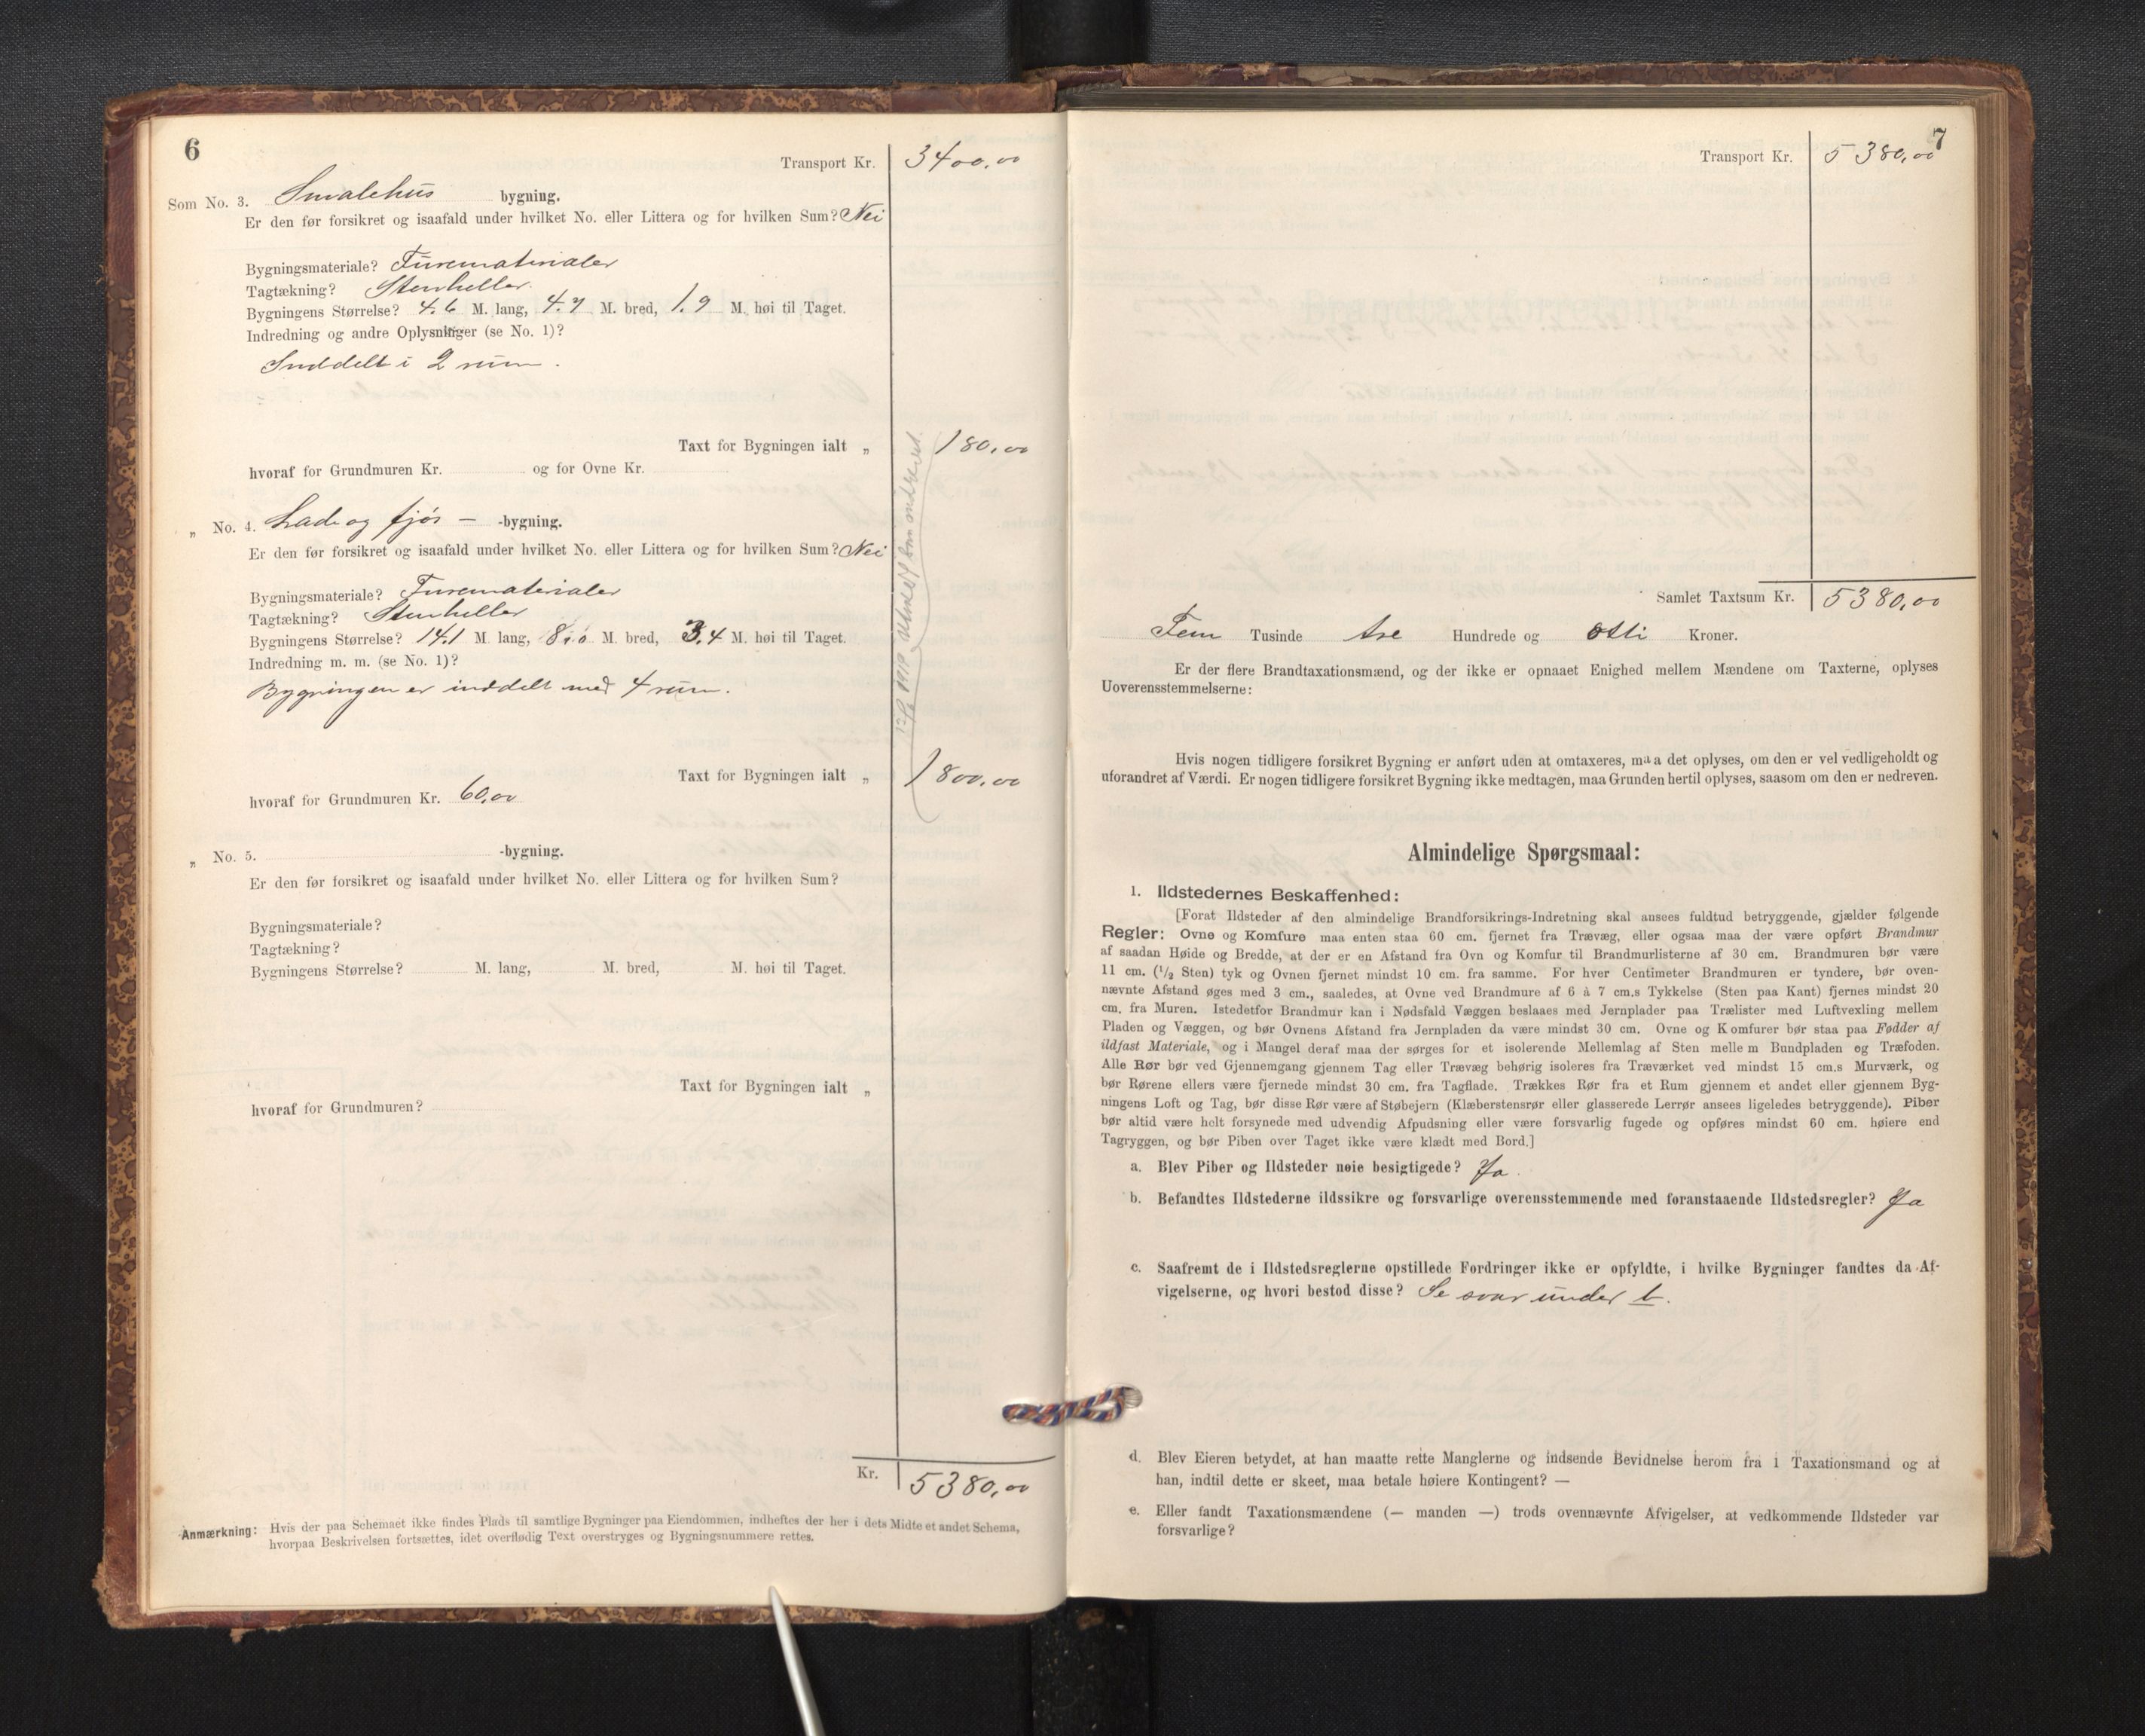 6
Transport Kr. 3400,00
Som No. 3. Smalehus bygning.
Er den før forsikret og isaafald under hvilket No. eller Littera og for hvilken Sum? Nei
Bygningsmateriale? Furematerialer
Tagtækning? Stenheller.
Bygningens Størrelse? 4.6 M. lang, 4.7 M. bred, 1.9 M. høi til Taget.
Indredning og andre Oplysninger (se No. 1)?
Inddelt i 2 rum.
Taxt for Bygningen ialt „ 180,00
hvoraf for Grundmuren Kr. og for Ovne Kr.
„ No. 4. Lade og fjøs — -bygning.
Er den før forsikret og isaafald under hvilket No. eller Littera og for hvilken Sum? Nei
Bygningsmateriale? Furematerialer
Tagtækning? Stenheller
Bygningens Størrelse? 14.1 M. lang, 8.0 M. bred, 3.4 M. høi til Taget.
Indredning m. m. (se No. 1)?
Bygningen er inddelt med 4 rum.
Taxt for Bygningen ialt „ 1800,00
hvoraf for Grundmuren Kr. 60,00
„ No. 5. -bygning.
Er den før forsikret og isaafald under hvilket No. eller Littera og for hvilken Sum?
Bygningsmateriale?
Tagtækning?
Bygningens Størrelse? M. lang, M. bred, M. høi til Taget.
Taxt for Bygningen ialt „
hvoraf for Grundmuren?
Kr. 5380,00
Anmærkning: Hvis der paa Schemaet ikke findes Plads til samtlige Bygninger paa Eiendommen, indheftes der her i dets Midte et andet Schema,
hvorpaa Beskrivelsen fortsættes, idet overflødig Text overstryges og Bygningsnummere rettes.
7
Transport Kr. 5380,00
Samlet Taxtsum Kr. 5380,00
Fem Tusinde tre Hundrede og otti Kroner.
Er der flere Brandtaxationsmænd, og der ikke er opnaaet Enighed mellem Mændene om Taxterne, oplyses
Uoverensstemmelserne:
Hvis nogen tidligere forsikret Bygning er anført uden at omtaxeres, maa det oplyses, om den er vel vedligeholdt og
uforandret af Værdi. Er nogen tidligere forsikret Bygning ikke medtagen, maa Grunden hertil oplyses, saasom om den er nedreven.
Almindelige Spørgsmaal:
1. Ildstedernes Beskaffenhed:
[Forat Ildsteder af den almindelige Brandforsikrings-Indretning skal ansees fuldtud betryggende, gjælder følgende
Regler: Ovne og Komfure maa enten staa 60 cm. fjernet fra Trævæg, eller ogsaa maa der være opført Brandmur
af saadan Høide og Bredde, at der er en Afstand fra Ovn og Komfur til Brandmurlisterne af 30 cm. Brandmuren bør være
11 cm. (1/2 Sten) tyk og Ovnen fjernet mindst 10 cm. fra samme. For hver Centimeter Brandmuren er tyndere, bør oven-
nævnte Afstand øges med 3 cm., saaledes, at Ovne ved Brandmure af 6 à 7 cm.s Tykkelse (Sten paa Kant) fjernes mindst 20
cm. fra Muren. Istedetfor Brandmur kan i Nødsfald Væggen beslaaes med Jernplader paa Trælister med Luftvexling mellem
Pladen og Væggen, og bør Ovnens Afstand fra Jernpladen da være mindst 30 cm. Ovne og Komfurer bør staa paa Fødder af
ildfast Materiale, og i Mangel deraf maa der sørges for et isolerende Mellemlag af Sten mellem Bundpladen og Træfoden.
Alle Rør bør ved Gjennemgang gjennem Tag eller Trævæg behørig isoleres fra Træværket ved mindst 15 cm.s Murværk, og
bør Rørene ellers være fjernede mindst 30 cm. fra Tagflade. Trækkes Rør fra et Rum gjennem et andet eller gjennem Byg-
ningens Loft og Tag, bør disse Rør være af Støbejern (Klæberstensrør eller glasserede Lerrør ansees ligeledes betryggende). Piber
bør altid være helt forsynede med udvendig Afpudsning eller være forsvarlig fugede og opføres mindst 60 cm. høiere end
Tagryggen, og bør Piben over Taget ikke være klædt med Bord.]
a. Blev Piber og Ildsteder nøie besigtigede? Ja.
b. Befandtes Ildstederne ildssikre og forsvarlige overensstemmende med foranstaaende Ildstedsregler? Ja
c. Saafremt de i Ildstedsreglerne opstillede Fordringer ikke er opfyldte, i hvilke Bygninger fandtes da Af-
vigelserne, og hvori bestod disse? Se svar under b.
d. Blev Eieren betydet, at han maatte rette Manglerne og indsende Bevidnelse herom fra 1 Taxationsmand og at
han, indtil dette er skeet, maa betale høiere Kontingent? —
e. Eller fandt Taxationsmændene (— manden —) trods ovennævnte Afvigelser, at vedkommende Ildsteder var
forsvarlige?